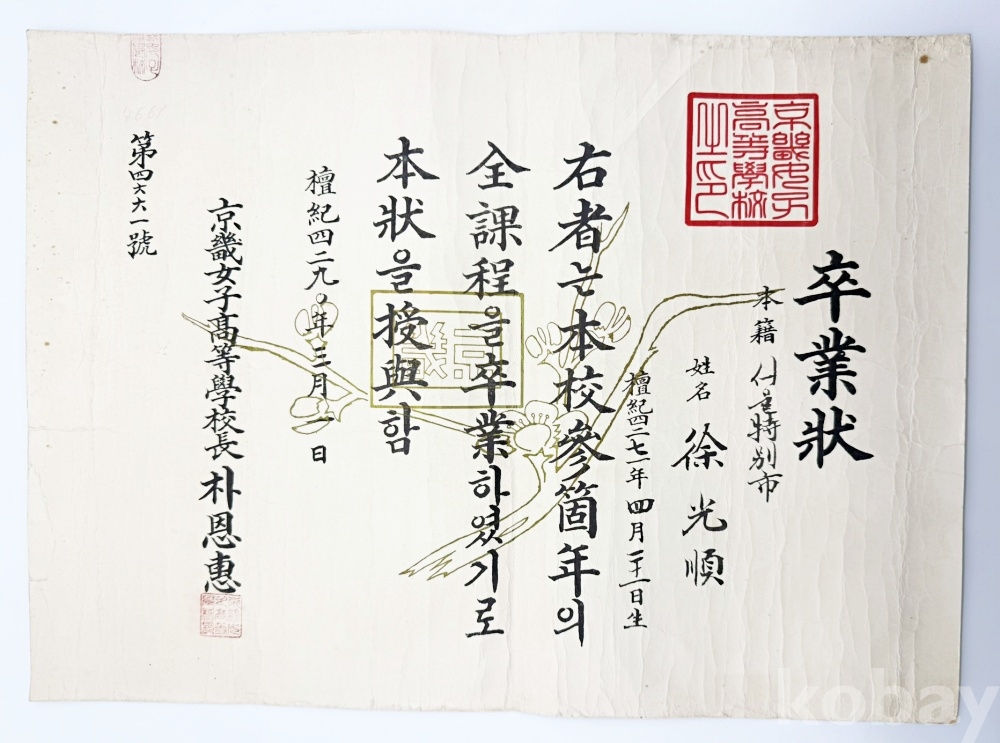 京畿女子
高等學校
之印
卒業狀
本籍 서울特別市
姓名 徐光順
檀紀四二七一年四月二十一日生
右者는本校參箇年의
全課程을卒業하였기로
本狀을授與함
京畿
檀紀四二九〇年三月一日
京畿女子高等學校長 朴恩惠
第四六六一號
4661
kobay